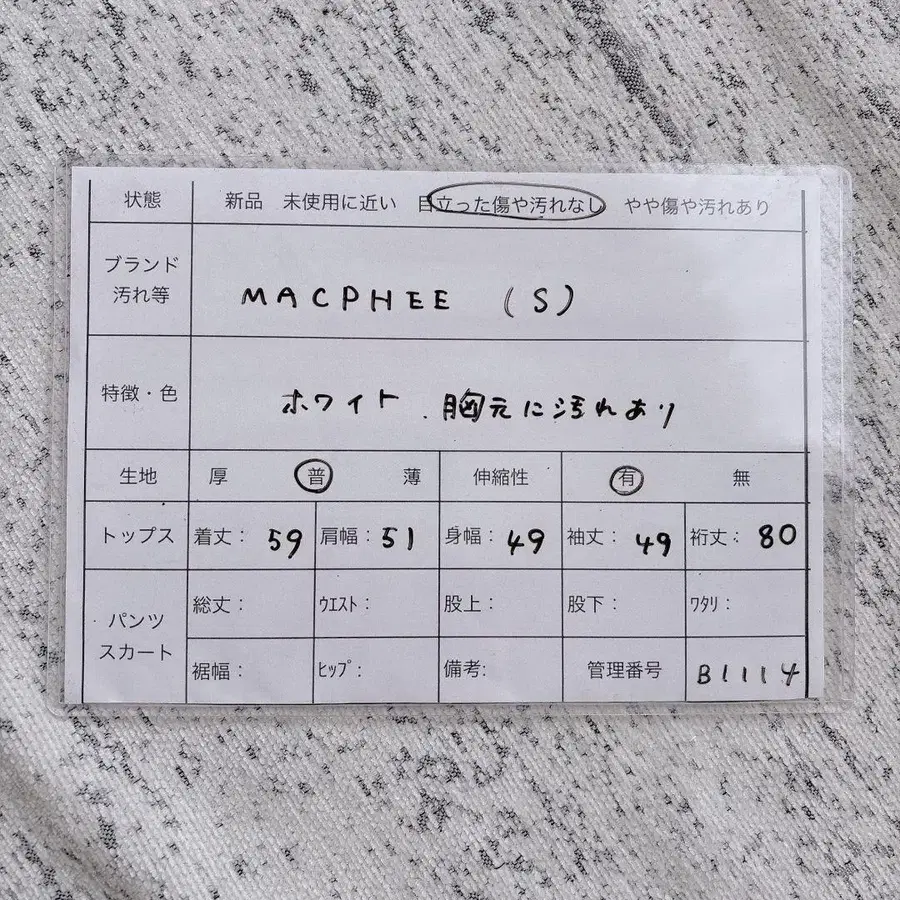 状態 新品 未使用に近い 目立った傷や汚れなし やや傷や汚れあり
ブランド
汚れ等
MACPHEE (S)
特徴・色 ホワイト.胸元に汚れあり
生地 厚 普 薄 伸縮性 有 無
トップス 着丈: 59 肩幅: 51 身幅: 49 袖丈: 49 裄丈: 80
パンツ
スカート
総丈: ｳｴｽﾄ: 股上: 股下: ﾜﾀﾘ:
裾幅: ﾋｯﾌﾟ: 備考: 管理番号 B1114